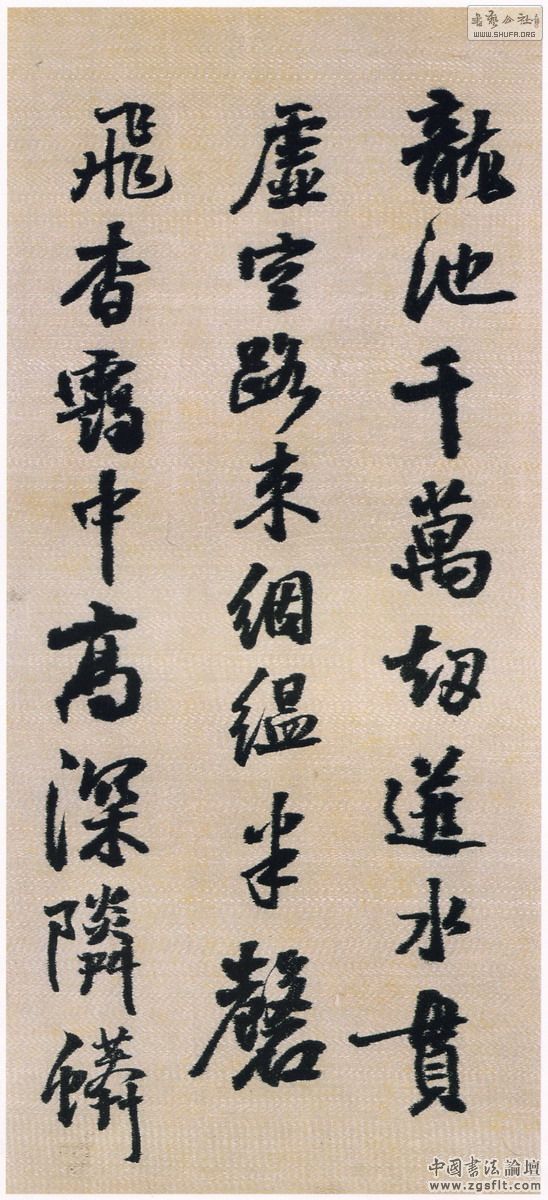 龍池千萬劫道水貫
虛空路東絪縕半磬
飛香靄中高深隣蠎
書藝公社
WWW.SHUFA.ORG
中國書法論壇
www.zgsflt.com